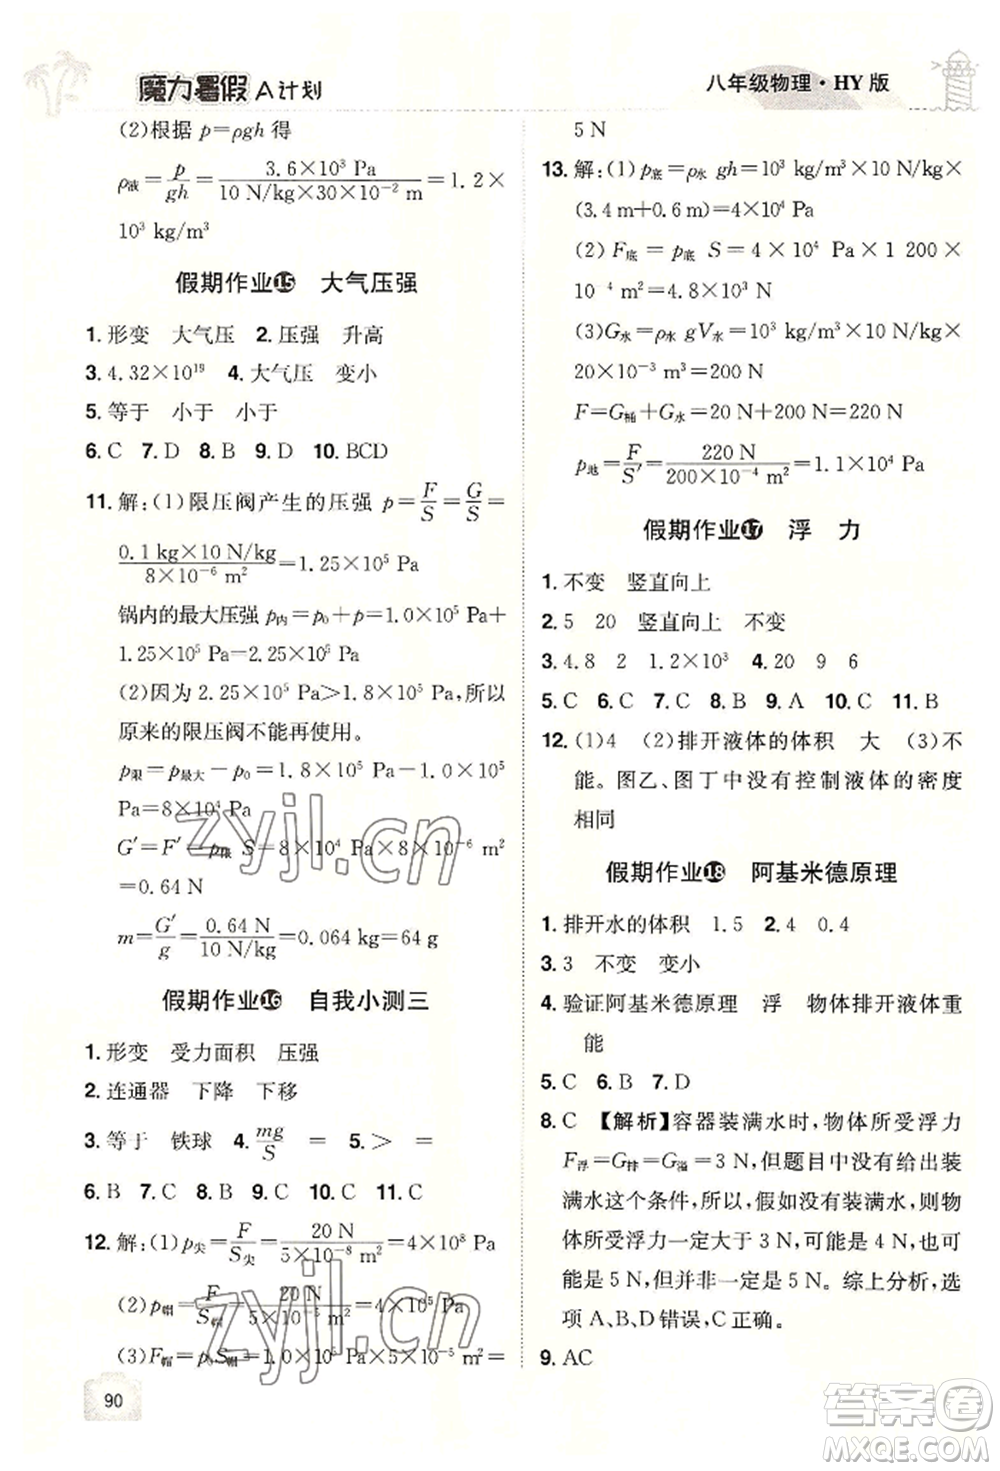 魔力暑假A计划
八年级物理·HY版
(2)根据 p=ρgh 得
ρ液=p/gh=3.6×10³ Pa/10 N/kg×30×10⁻² m=1.2×
10³ kg/m³
假期作业⑮ 大气压强
1.形变 大气压 2.压强 升高
3.4.32×10¹⁹ 4.大气压 变小
5.等于 小于 小于
6.C 7.D 8.B 9.D 10.BCD
11.解:(1)限压阀产生的压强 p=F/S=G/S=
0.1 kg×10 N/kg/8×10⁻⁶ m²=1.25×10⁵ Pa
锅内的最大压强 p内=p₀+p=1.0×10⁵ Pa+
1.25×10⁵ Pa=2.25×10⁵ Pa
(2)因为 2.25×10⁵ Pa>1.8×10⁵ Pa,所以
原来的限压阀不能再使用。
p限=p最大-p₀=1.8×10⁵ Pa-1.0×10⁵ Pa=
8×10⁴ Pa
G′=F′=p限S=8×10⁴ Pa×8×10⁻⁶ m²
=0.64 N
m=G′/g=0.64 N/10 N/kg=0.064 kg=64 g
假期作业⑯ 自我小测三
1.形变 受力面积 压强
2.连通器 下降 下移
3.等于 铁球 4.mg/S = 5.> =
6.B 7.C 8.C 9.C 10.C 11.C
12.解:(1)p尖=F/S尖=20 N/5×10⁻⁸ m²=4×10⁸ Pa
(2)p帽=F/S帽=20 N/5×10⁻⁵ m²=4×10⁵ Pa
(3)F帽=p S帽=1.0×10⁵ Pa×5×10⁻⁵ m²=
90
5 N
13.解:(1)p底=ρ水 gh=10³ kg/m³×10 N/kg×
(3.4 m+0.6 m)=4×10⁴ Pa
(2) F底=p底 S=4×10⁴ Pa×1 200×
10⁻⁴ m²=4.8×10³ N
(3)G水=ρ水 gV水=10³ kg/m³×10 N/kg×
20×10⁻³ m³=200 N
F=G桶+G水=20 N+200 N=220 N
p地=F/S′=220 N/200×10⁻⁴ m²=1.1×10⁴ Pa
假期作业⑰ 浮 力
1.不变 竖直向上
2.5 20 竖直向上 不变
3.4.8 2 1.2×10³ 4.20 9 6
5.C 6.C 7.C 8.B 9.A 10.C 11.B
12.(1)4 (2)排开液体的体积 大 (3)不
能。图乙、图丁中没有控制液体的密度
相同
假期作业⑱ 阿基米德原理
1.排开水的体积 1.5 2.4 0.4
3.3 不变 变小
4.验证阿基米德原理 浮 物体排开液体重
能
5.C 6.B 7.D
8.C 【解析】容器装满水时,物体所受浮力
F浮=G排=G溢=3 N,但题目中没有给出装
满水这个条件,所以,假如没有装满水,则物
体所受浮力一定大于 3 N,可能是 4 N,可
能是 5 N,但并非一定是 5 N。综上分析,选
项 A、B、D 错误,C 正确。
9.AC
zyjl.cn
zyjl.cn
答案圈
MXQE.COM